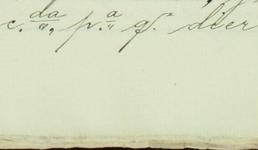 c. da " p. a " g. dier